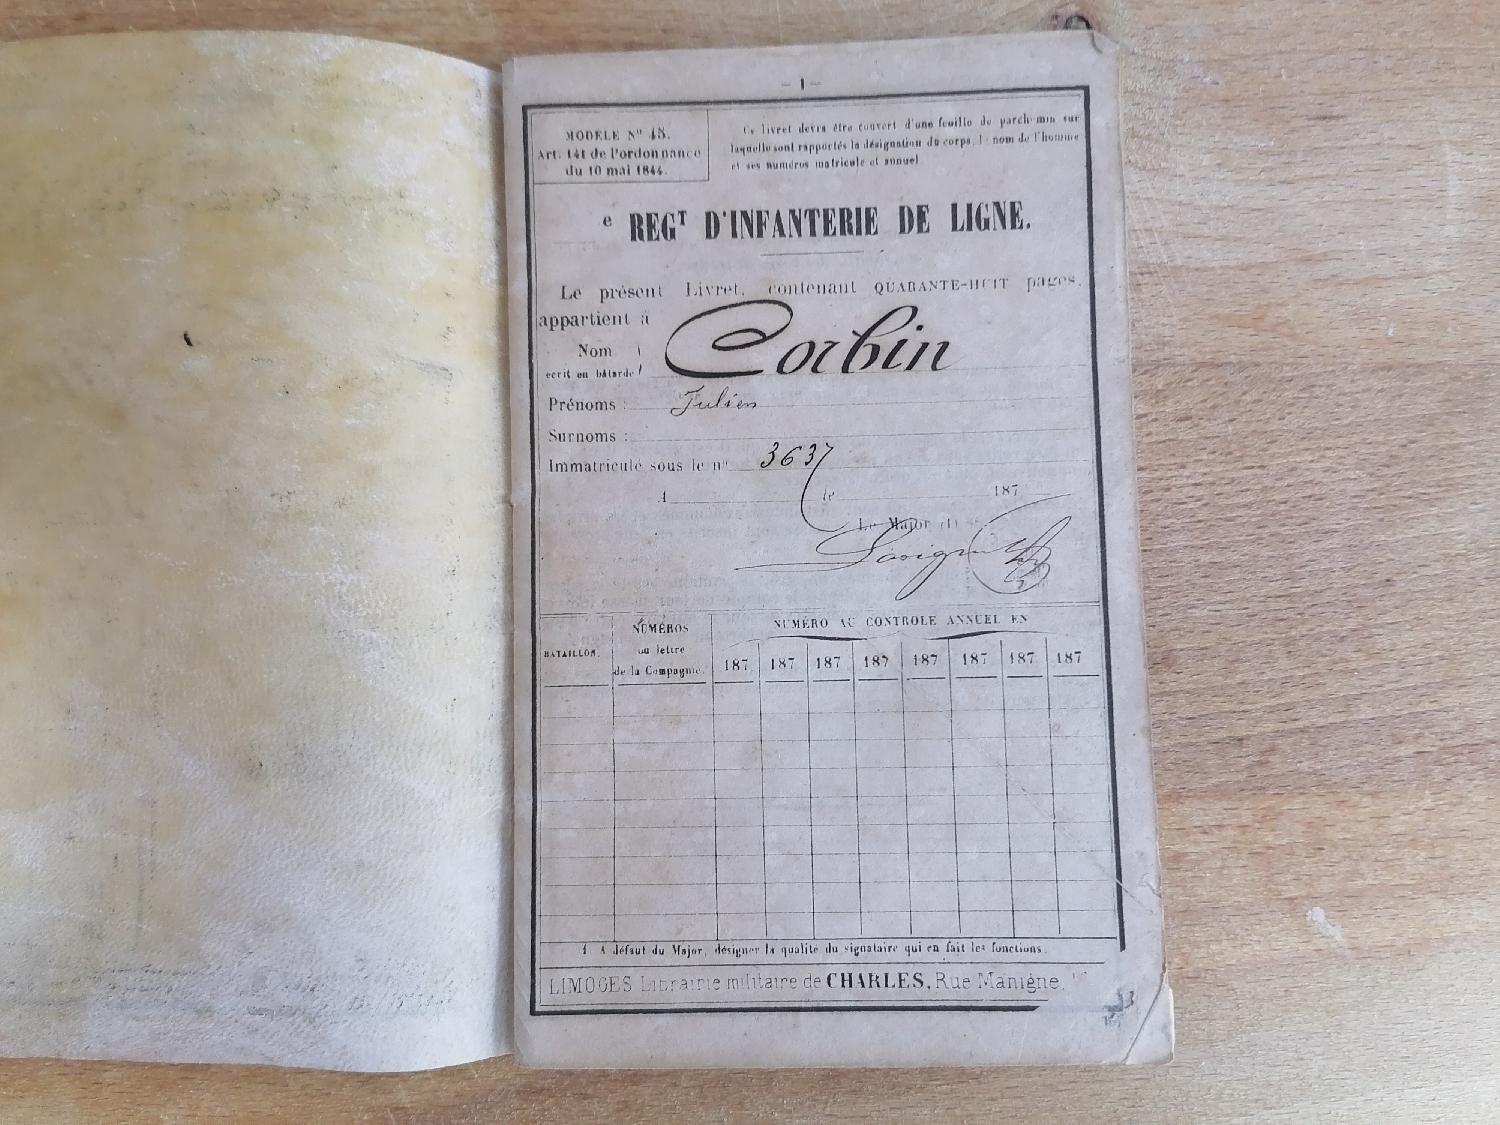 – 1 –
MODÈLE Nº 48.
Art. 141 de l'ordonnance
du 10 mai 1844.
Ce livret devra être couvert d'une feuille de parchemin sur
laquelle sont rapportés la désignation du corps, le nom de l'homme
et ses numéros matricule et annuel.
e REGT D'INFANTERIE DE LIGNE.
Le présent Livret, contenant QUARANTE-HUIT pages,
appartient à
Nom
écrit en bâtarde
Corbin
Prénoms : Julien
Surnoms :
Immatriculé sous le nº 3637
A le 187
Le Major (1)
BATAILLON.
NUMÉROS
ou lettre
de la Compagnie.
NUMÉRO AU CONTROLE ANNUEL EN
187 187 187 187 187 187 187 187
1. A défaut du Major, désigner la qualité du signataire qui en fait les fonctions.
LIMOGES Librairie militaire de CHARLES, Rue Manigne,